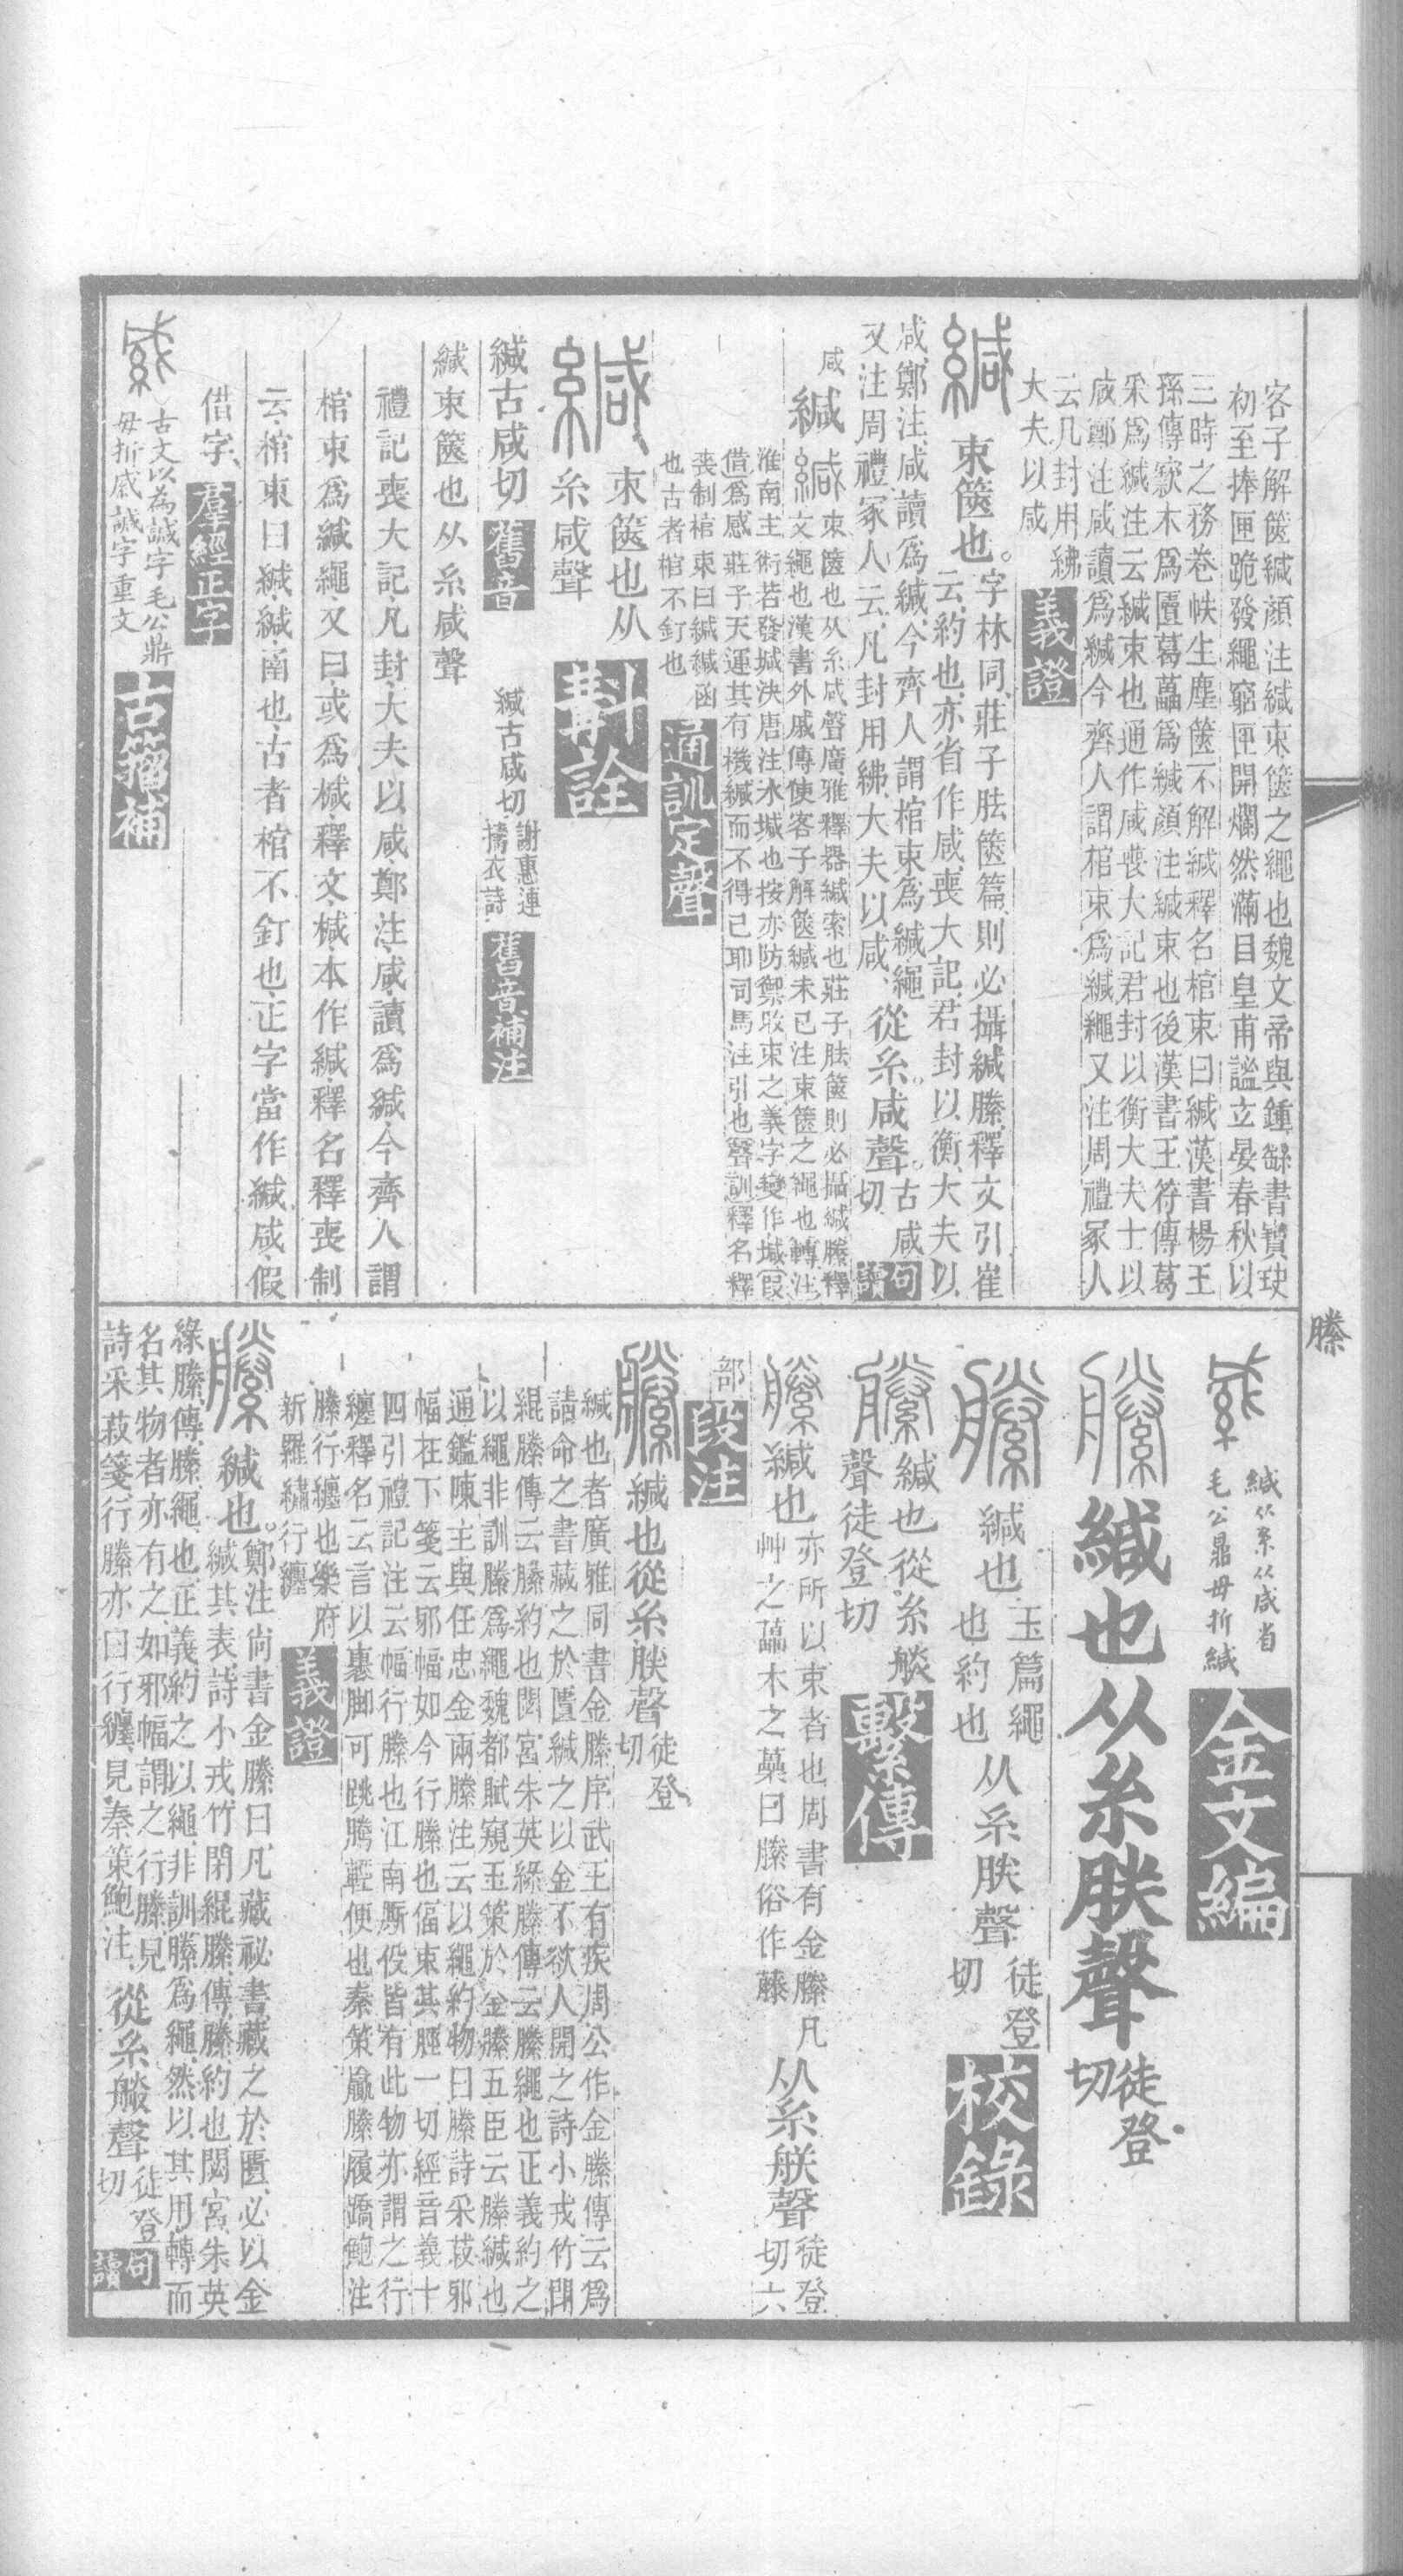 客子解篋緘顏注緘束篋之繩也魏文帝與鍾繇書寶玦
初至捧匣跪發繩窮匣開爛然滿目皇甫謐立晏春秋以
三時之務卷帙生塵篋不解緘釋名棺束曰緘漢書楊王
孫傳窾木爲匵葛藟爲緘顏注緘束也後漢書王符傳葛
采爲緘注云緘束也通作咸喪大記君封以衡大夫士以
咸鄭注咸讀爲緘今齊人謂棺束爲緘繩又注周禮冢人
云凡封用綍
大夫以咸
義證
緘
束篋也。
字林同莊子胠篋篇則必攝緘縢釋文引崔
云約也亦省作咸喪大記君封以衡大夫以
咸鄭注咸讀爲緘今齊人謂棺束爲緘繩
又注周禮冢人云凡封用綍大夫以咸
從糸。咸聲。
古咸
切
句讀
咸
緘
緘
束篋也从糸咸聲廣雅釋器緘索也莊子胠篋則必攝緘縢釋
文繩也漢書外戚傳使客子解篋緘未已注束篋之繩也轉注
淮南主術若發城決唐注水城也按亦防禦收束之義字變作城叚
借爲感莊子天運其有機緘而不得已耶司馬注引也聲訓釋名釋
喪制棺束曰緘緘函
也古者棺不釘也
通訓定聲
緘
束篋也从
糸咸聲
斠詮
緘古咸切
舊音
緘古咸切
謝惠連
擣衣詩
舊音補注
緘束篋也从糸咸聲
禮記喪大記凡封大夫以咸鄭注咸讀爲緘今齊人謂
棺束爲緘繩又曰或爲椷釋文椷本作緘釋名釋喪制
云棺束曰緘緘函也古者棺不釘也正字當作緘咸假
借字
羣經正字
古文以為誠字毛公鼎
毋折咸誠字重文
古籀補
縢
緘从糸从咸省
毛公鼎毋折緘
金文編
縢
緘也从糸朕聲
徒登
切
縢
緘也
玉篇繩
也約也
从糸朕聲
徒登
切
校錄
縢
緘也從糸朕
聲徒登切
繫傳
縢
緘也
亦所以束者也周書有金縢凡
艸之藟木之蘽曰縢俗作藤
从糸朕聲
徒登
切六
部
段注
縢
緘也從糸朕聲
徒登
切
緘也者廣雅同書金縢序武王有疾周公作金縢傳云爲
請命之書藏之於匱緘之以金不欲人開之詩小戎竹閉
緄縢傳云縢約也閟宮朱英綠縢傳云縢繩也正義約之
以繩非訓縢爲繩魏都賦窺玉策於金縢五臣云縢緘也
通鑑陳主與任忠金兩縢注云以繩約物曰縢詩采菽邪
幅在下箋云邪幅如今行縢也偪束其脛一切經音義十
四引禮記注云幅行縢也江南廝役皆有此物亦謂之行
纏釋名云言以裹脚可跳騰輕便也秦策羸縢履蹻鮑注
縢行纏也樂府
新羅繡行纏
義證
縢
緘也。
鄭注尙書金縢曰凡藏祕書藏之於匱必以金
緘其表詩小戎竹閉緄縢傳縢約也閟宮朱英
綠縢傳縢繩也正義約之以繩非訓縢爲繩然以其用轉而
名其物者亦有之如邪幅謂之行縢見
詩采菽箋行縢亦曰行纏見秦策鮑注
從糸朕聲
徒登
切
句讀